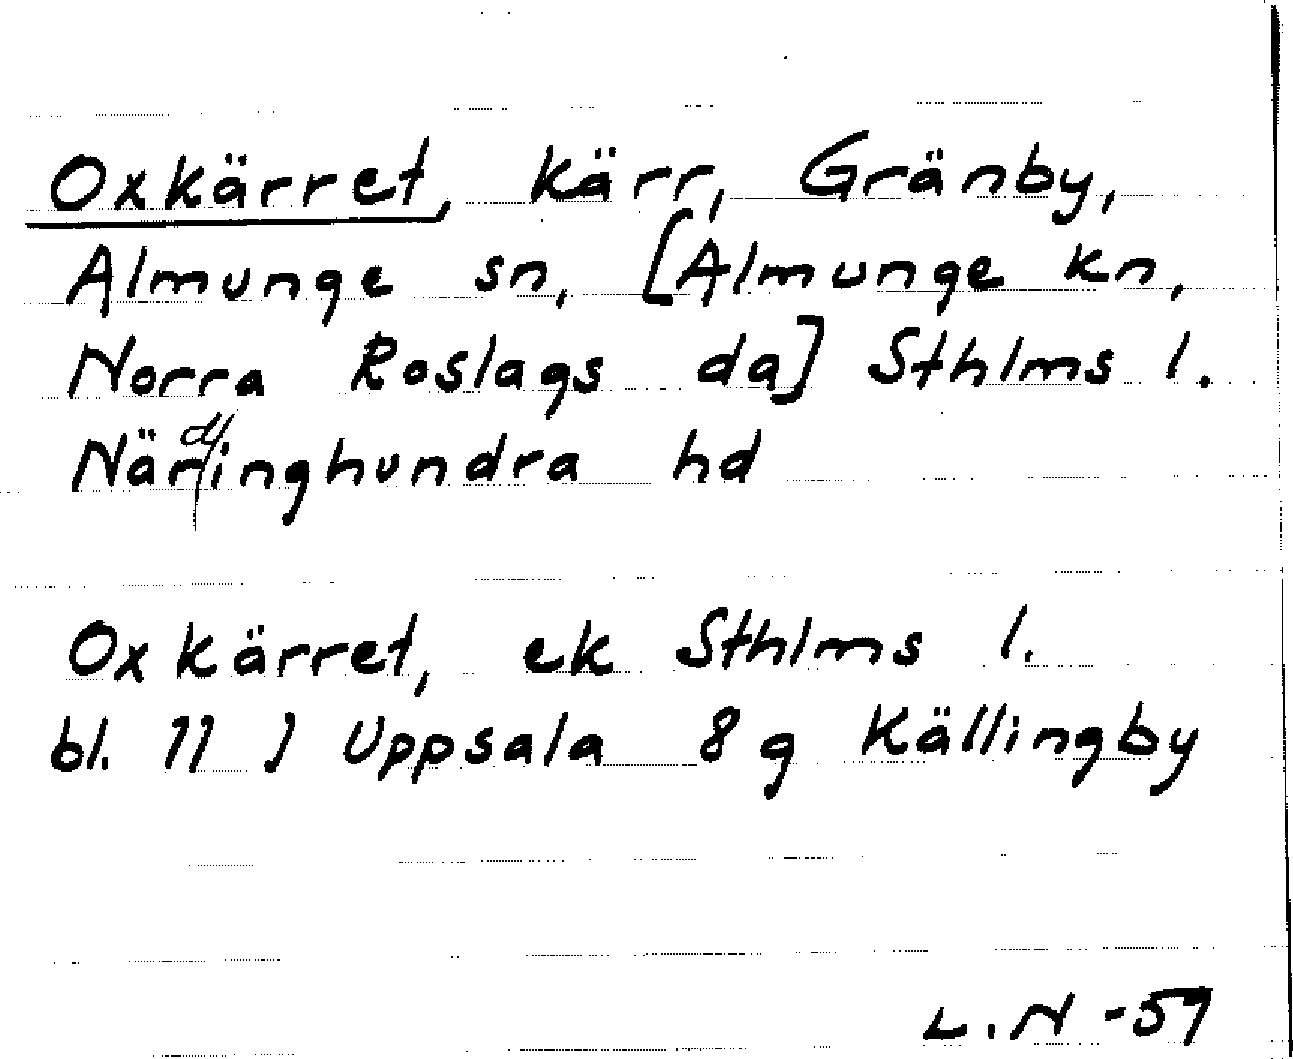 Oxkärret, kärr, Gränby,
Almunge sn, [Almunge kn,
Norra Roslags da] Sthlms l.
Närdinghundra hd
Oxkärret, ek Sthlms l.
bl. 11 J Uppsala 8 g Källingby
L.N -57